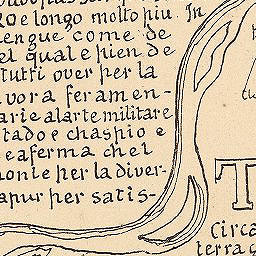 Ro e longo molto piu In
lengue come de
el qual e pien de
tutti over per la
vora feramen-
arie alarte militare
tado e chaspio e
e aferma chel
monte per la diver-
apur per satis-
T
Circa
terra